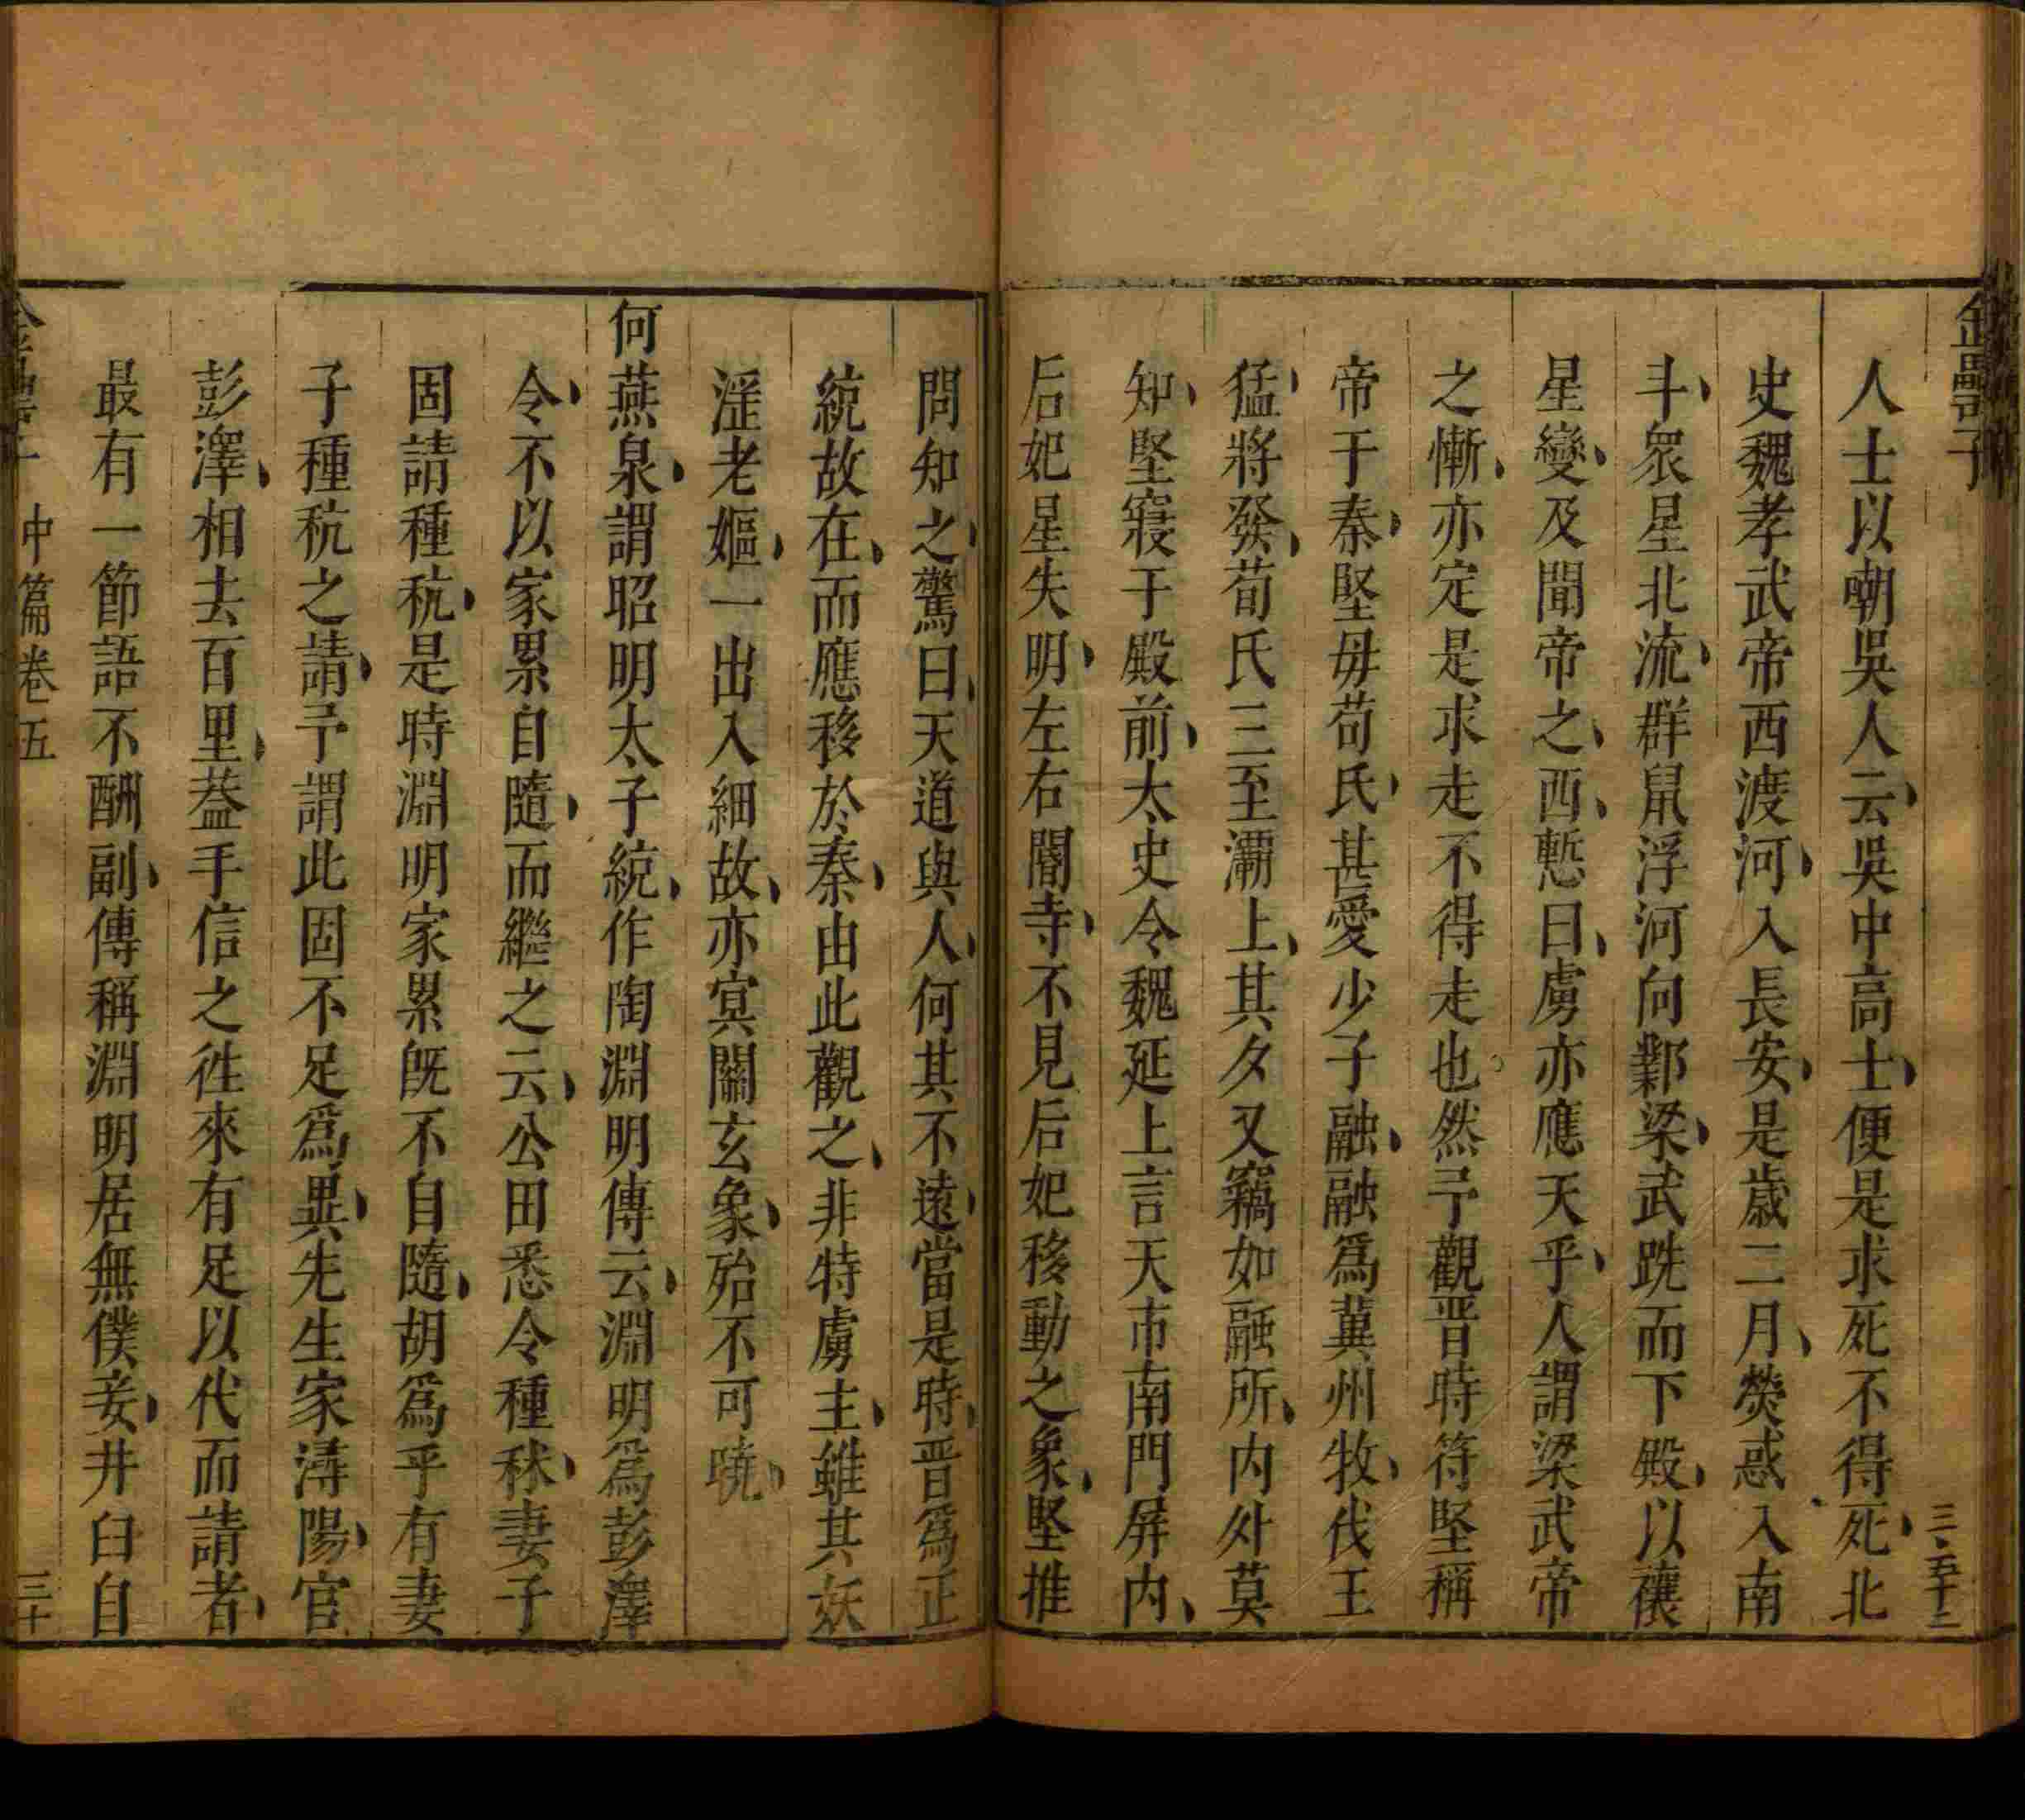 金罍子
三五十二
人士以嘲吳人云吳中高士便是求死不得死北
史魏孝武帝西渡河入長安是歲二月熒惑入南
斗衆星北流群鼠浮河向鄴梁武跣而下殿以禳
星變及聞帝之西慙曰虜亦應天乎人謂梁武帝
之慚亦定是求走不得走也然予觀晋時符堅稱
帝于秦堅毋苟氏甚愛少子融融爲冀州牧伐王
猛將發荀氏三至灞上其夕又竊如融所内外莫
知堅寢于殿前太史令魏延上言天市南門屏内
后妃星失明左右閽寺不見后妃移動之象堅推
問知之驚曰天道與人何其不遠當是時晋爲正
統故在而應移於秦由此觀之非特虜主雖其妖
淫老嫗一出入細故亦冥關玄象殆不可曉
何燕泉謂昭明太子統作陶淵明傳云淵明爲彭澤
令不以家累自隨而繼之云公田悉令種秫妻子
固請種秔是時淵明家累旣不自隨胡爲乎有妻
子種秔之請予謂此固不足爲異先生家潯陽官
彭澤相去百里葢手信之徃來有足以代而請者
最有一節語不酬副傳稱淵明居無僕妾井臼自
中篇卷五
三十